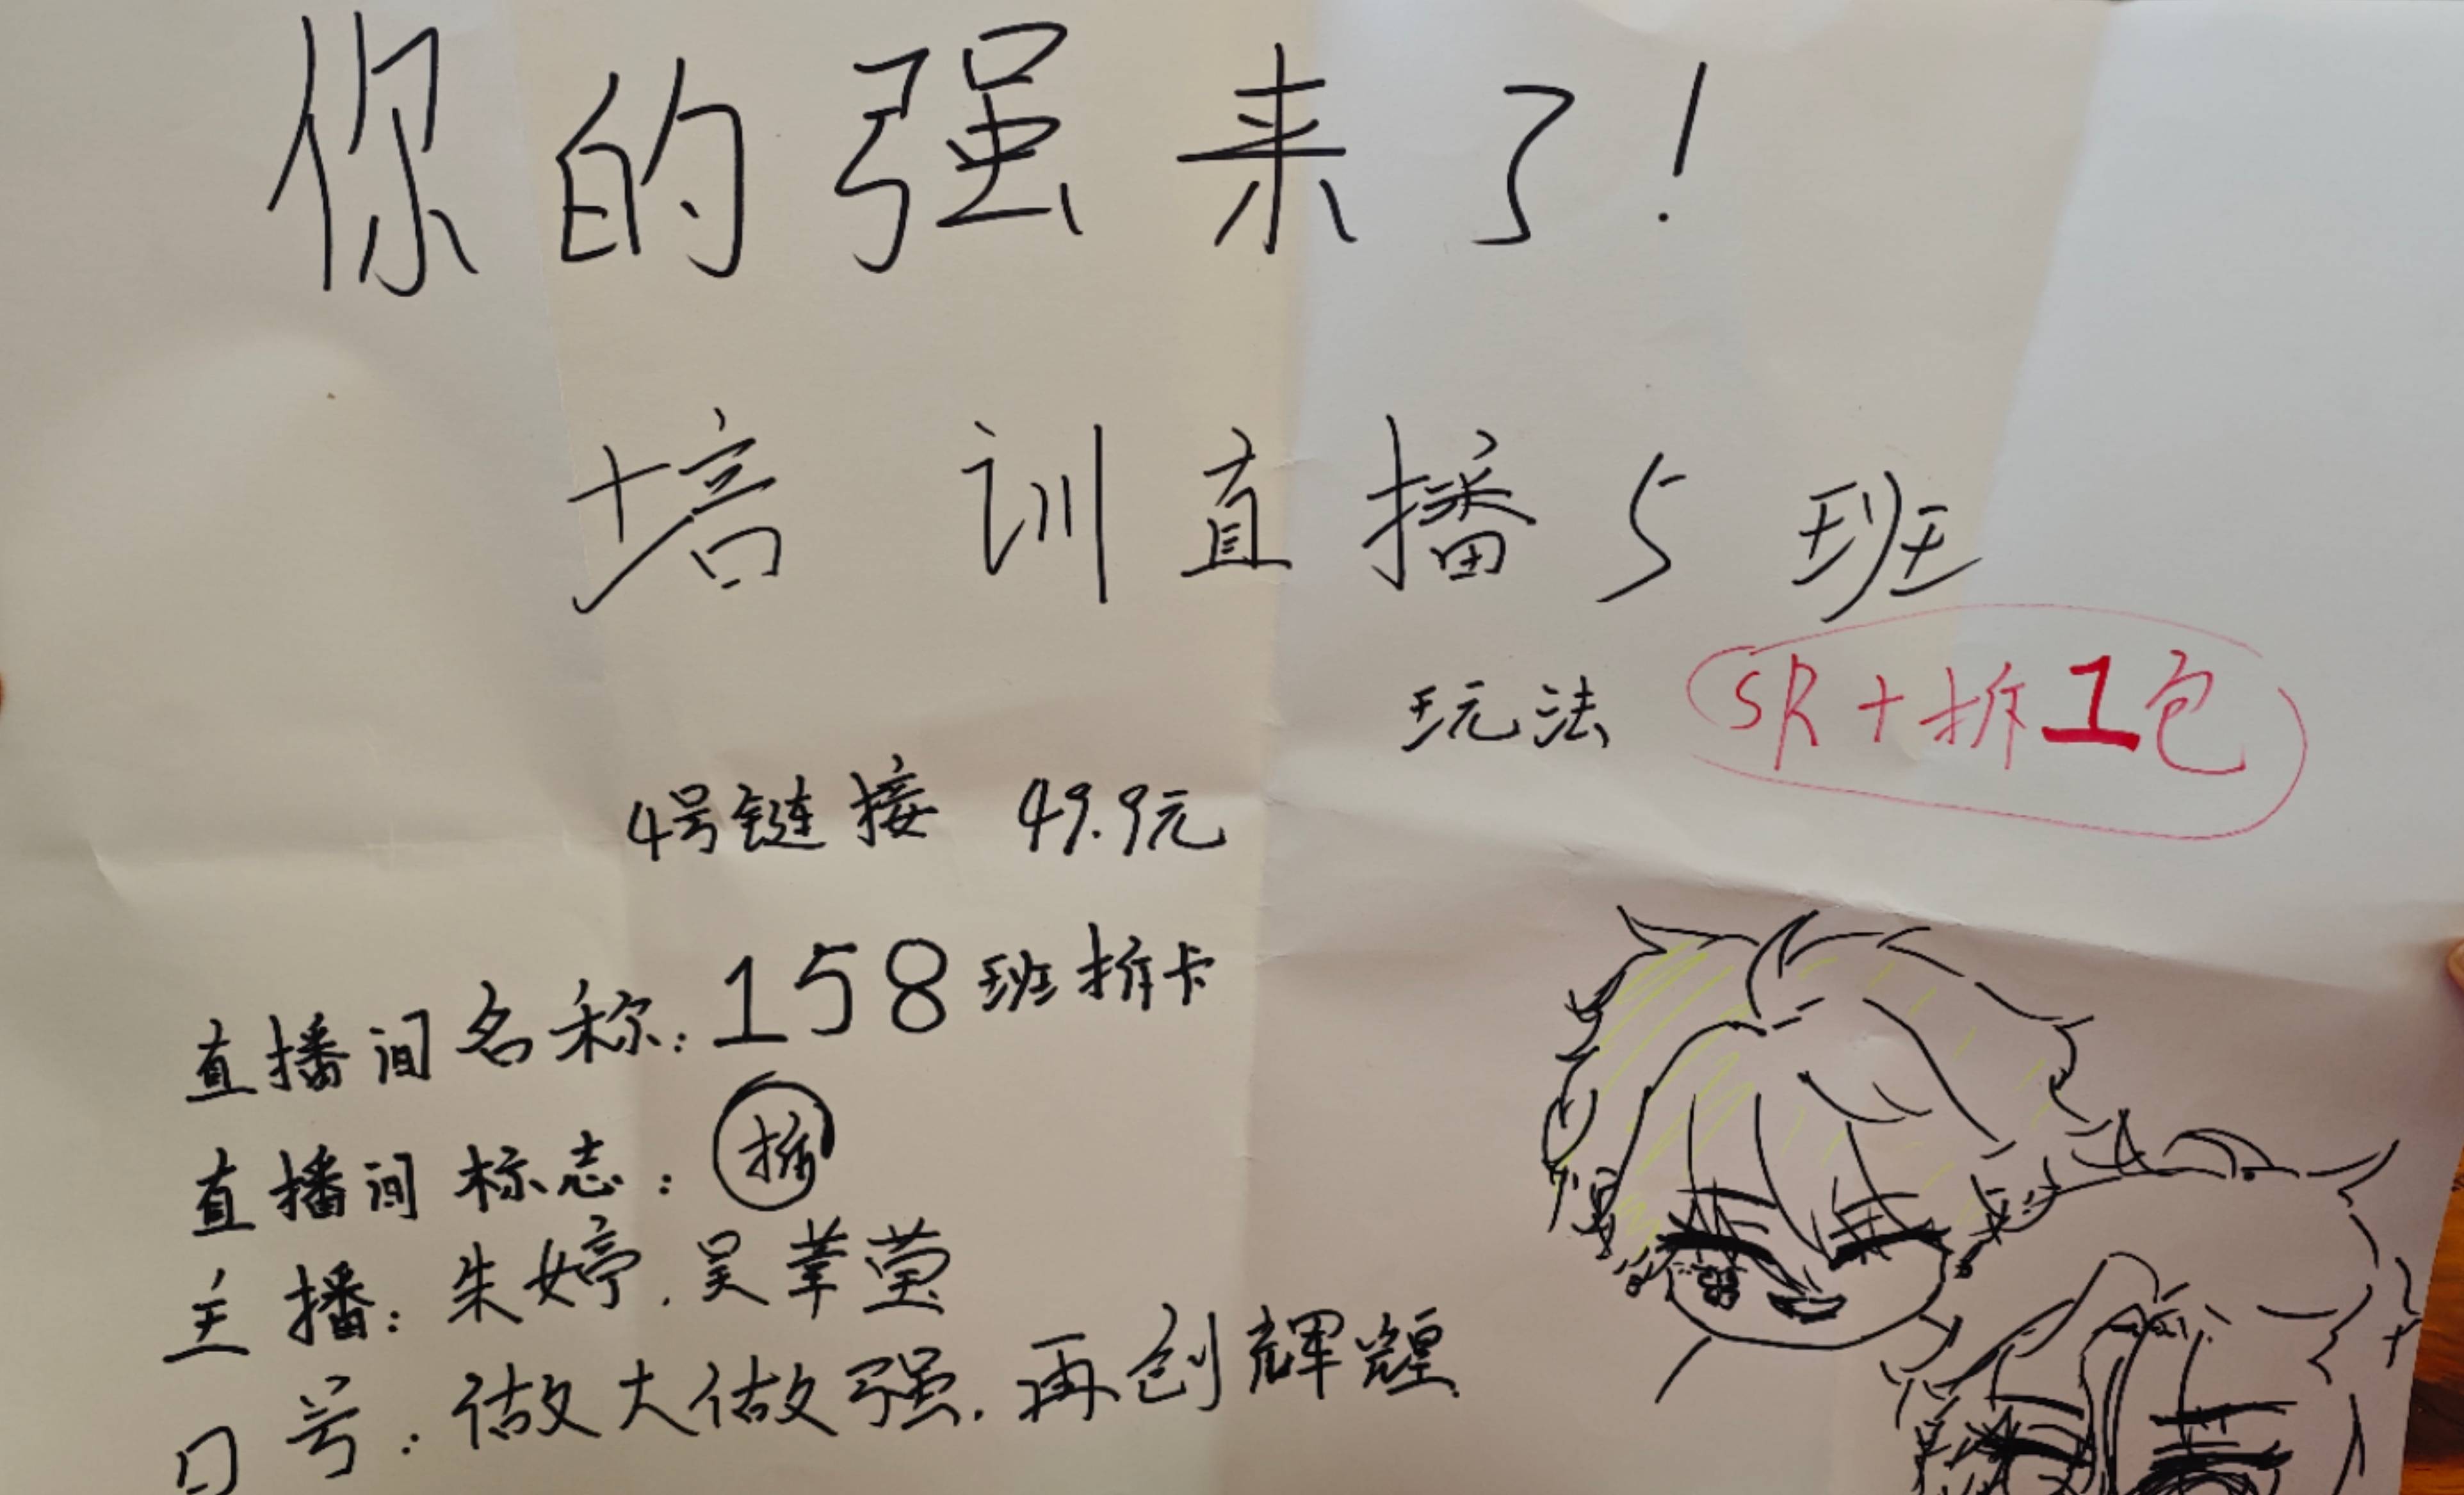 你的强来了!
培训直播5班
玩法 SR+拆1包
4号链接 49.9元
直播间名称:158班拆卡
直播间标志:拆
主播:朱婷.吴莹
口号:做大做强.再创辉煌